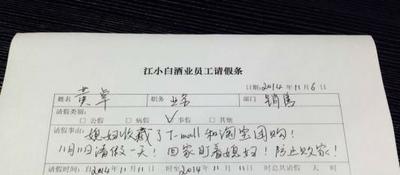 江小白酒业员工请假条
日期:2014年11月6日
姓名 黄卓 职务 业务 部门 销售
请假类别: □公假 □病假 ☑事假 □其他
请假事由: 媳妇收藏了T-mall和淘宝团购!
11月11日请假一天!回家盯着媳妇!防止败家!
请假时间:2014年11月11日 时至2014年11月11日 时总共请假 天 时